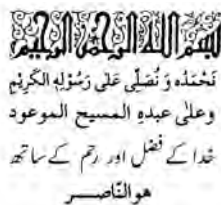 بسم الله الرحمن الرحيم
نَحْمَدُهٗ وَ نُصَلِّی عَلٰی رَسُوْلِهِ الْکَرِیْمِ
وعلى عبده المسيح الموعود
خدا کے فضل اور رحم کے ساتھ
هو الناصر